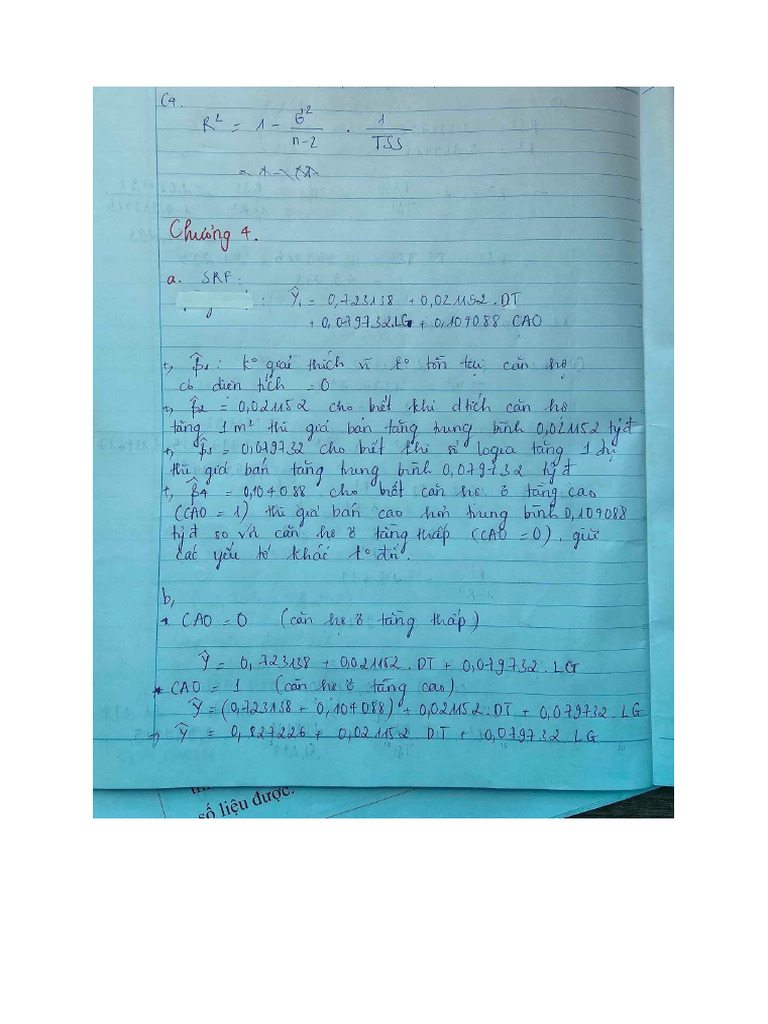 C4.
R² = 1 - σ̂²/n-2 . 1/TSS
Chương 4.
a. SRF:
: Ŷᵢ = 0,723138 + 0,021152 . DT
+ 0,079732.LG + 0,109088 CAO
+, β̂₁ : kº giải thích vì kº tồn tại căn hộ
có diện tích = 0
+, β̂₂ = 0,021152 cho biết khi dtích căn hộ
tăng 1 m² thì giá bán tăng trung bình 0,021152 tỷ đ
+, β̂₃ = 0,079732 cho biết khi số logia tăng 1 đvị
thì giá bán tăng trung bình 0,079732 tỷ đ
+, β̂₄ = 0,104088 cho biết căn hộ ở tầng cao
(CAO = 1) thì giá bán cao hơn trung bình 0,109088
tỷ đ so với căn hộ ở tầng thấp (CAO = 0), giữ
các yếu tố khác kº đổi.
b,
* CAO = 0 (căn hộ ở tầng thấp)
Ŷ = 0,723138 + 0,021152 . DT + 0,079732. LG
* CAO = 1 (căn hộ ở tầng cao)
Ŷ = (0,723138 + 0,104088) + 0,021152 . DT + 0,079732 . LG
=> Ŷ = 0,827226 + 0,021152 DT + 0,079732 LG
số liệu được.